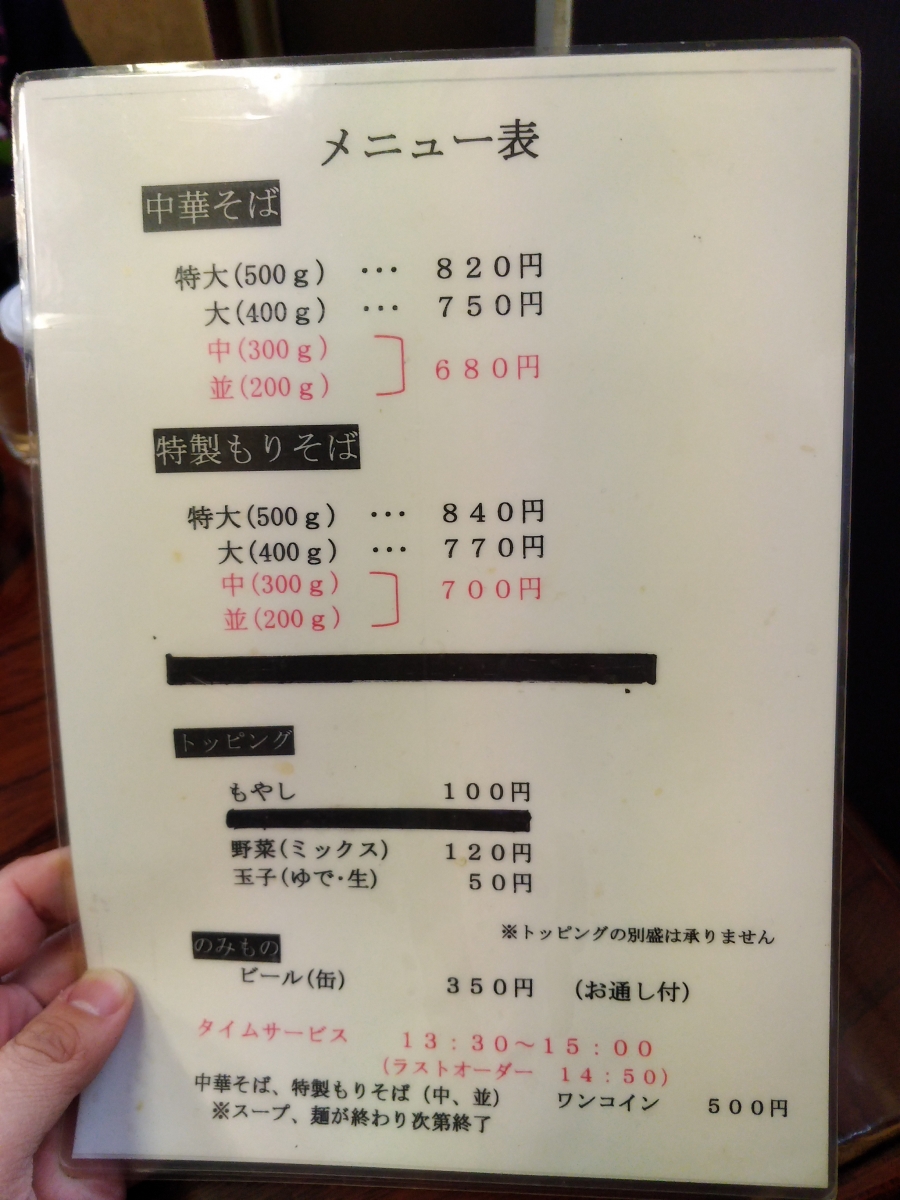 メニュー表
中華そば
特大(500ｇ) ･･･ ８２０円
大(400ｇ) ･･･ ７５０円
中(300ｇ)
並(200ｇ)
６８０円
特製もりそば
特大(500ｇ) ･･･ ８４０円
大(400ｇ) ･･･ ７７０円
中(300ｇ)
並(200ｇ)
７００円
トッピング
もやし １００円
野菜(ミックス) １２０円
玉子(ゆで･生) ５０円
※トッピングの別盛は承りません
のみもの
ビール(缶) ３５０円 （お通し付）
タイムサービス １３：３０～１５：００
(ラストオーダー １４：５０)
中華そば、特製もりそば（中、並） ワンコイン ５００円
※スープ、麺が終わり次第終了